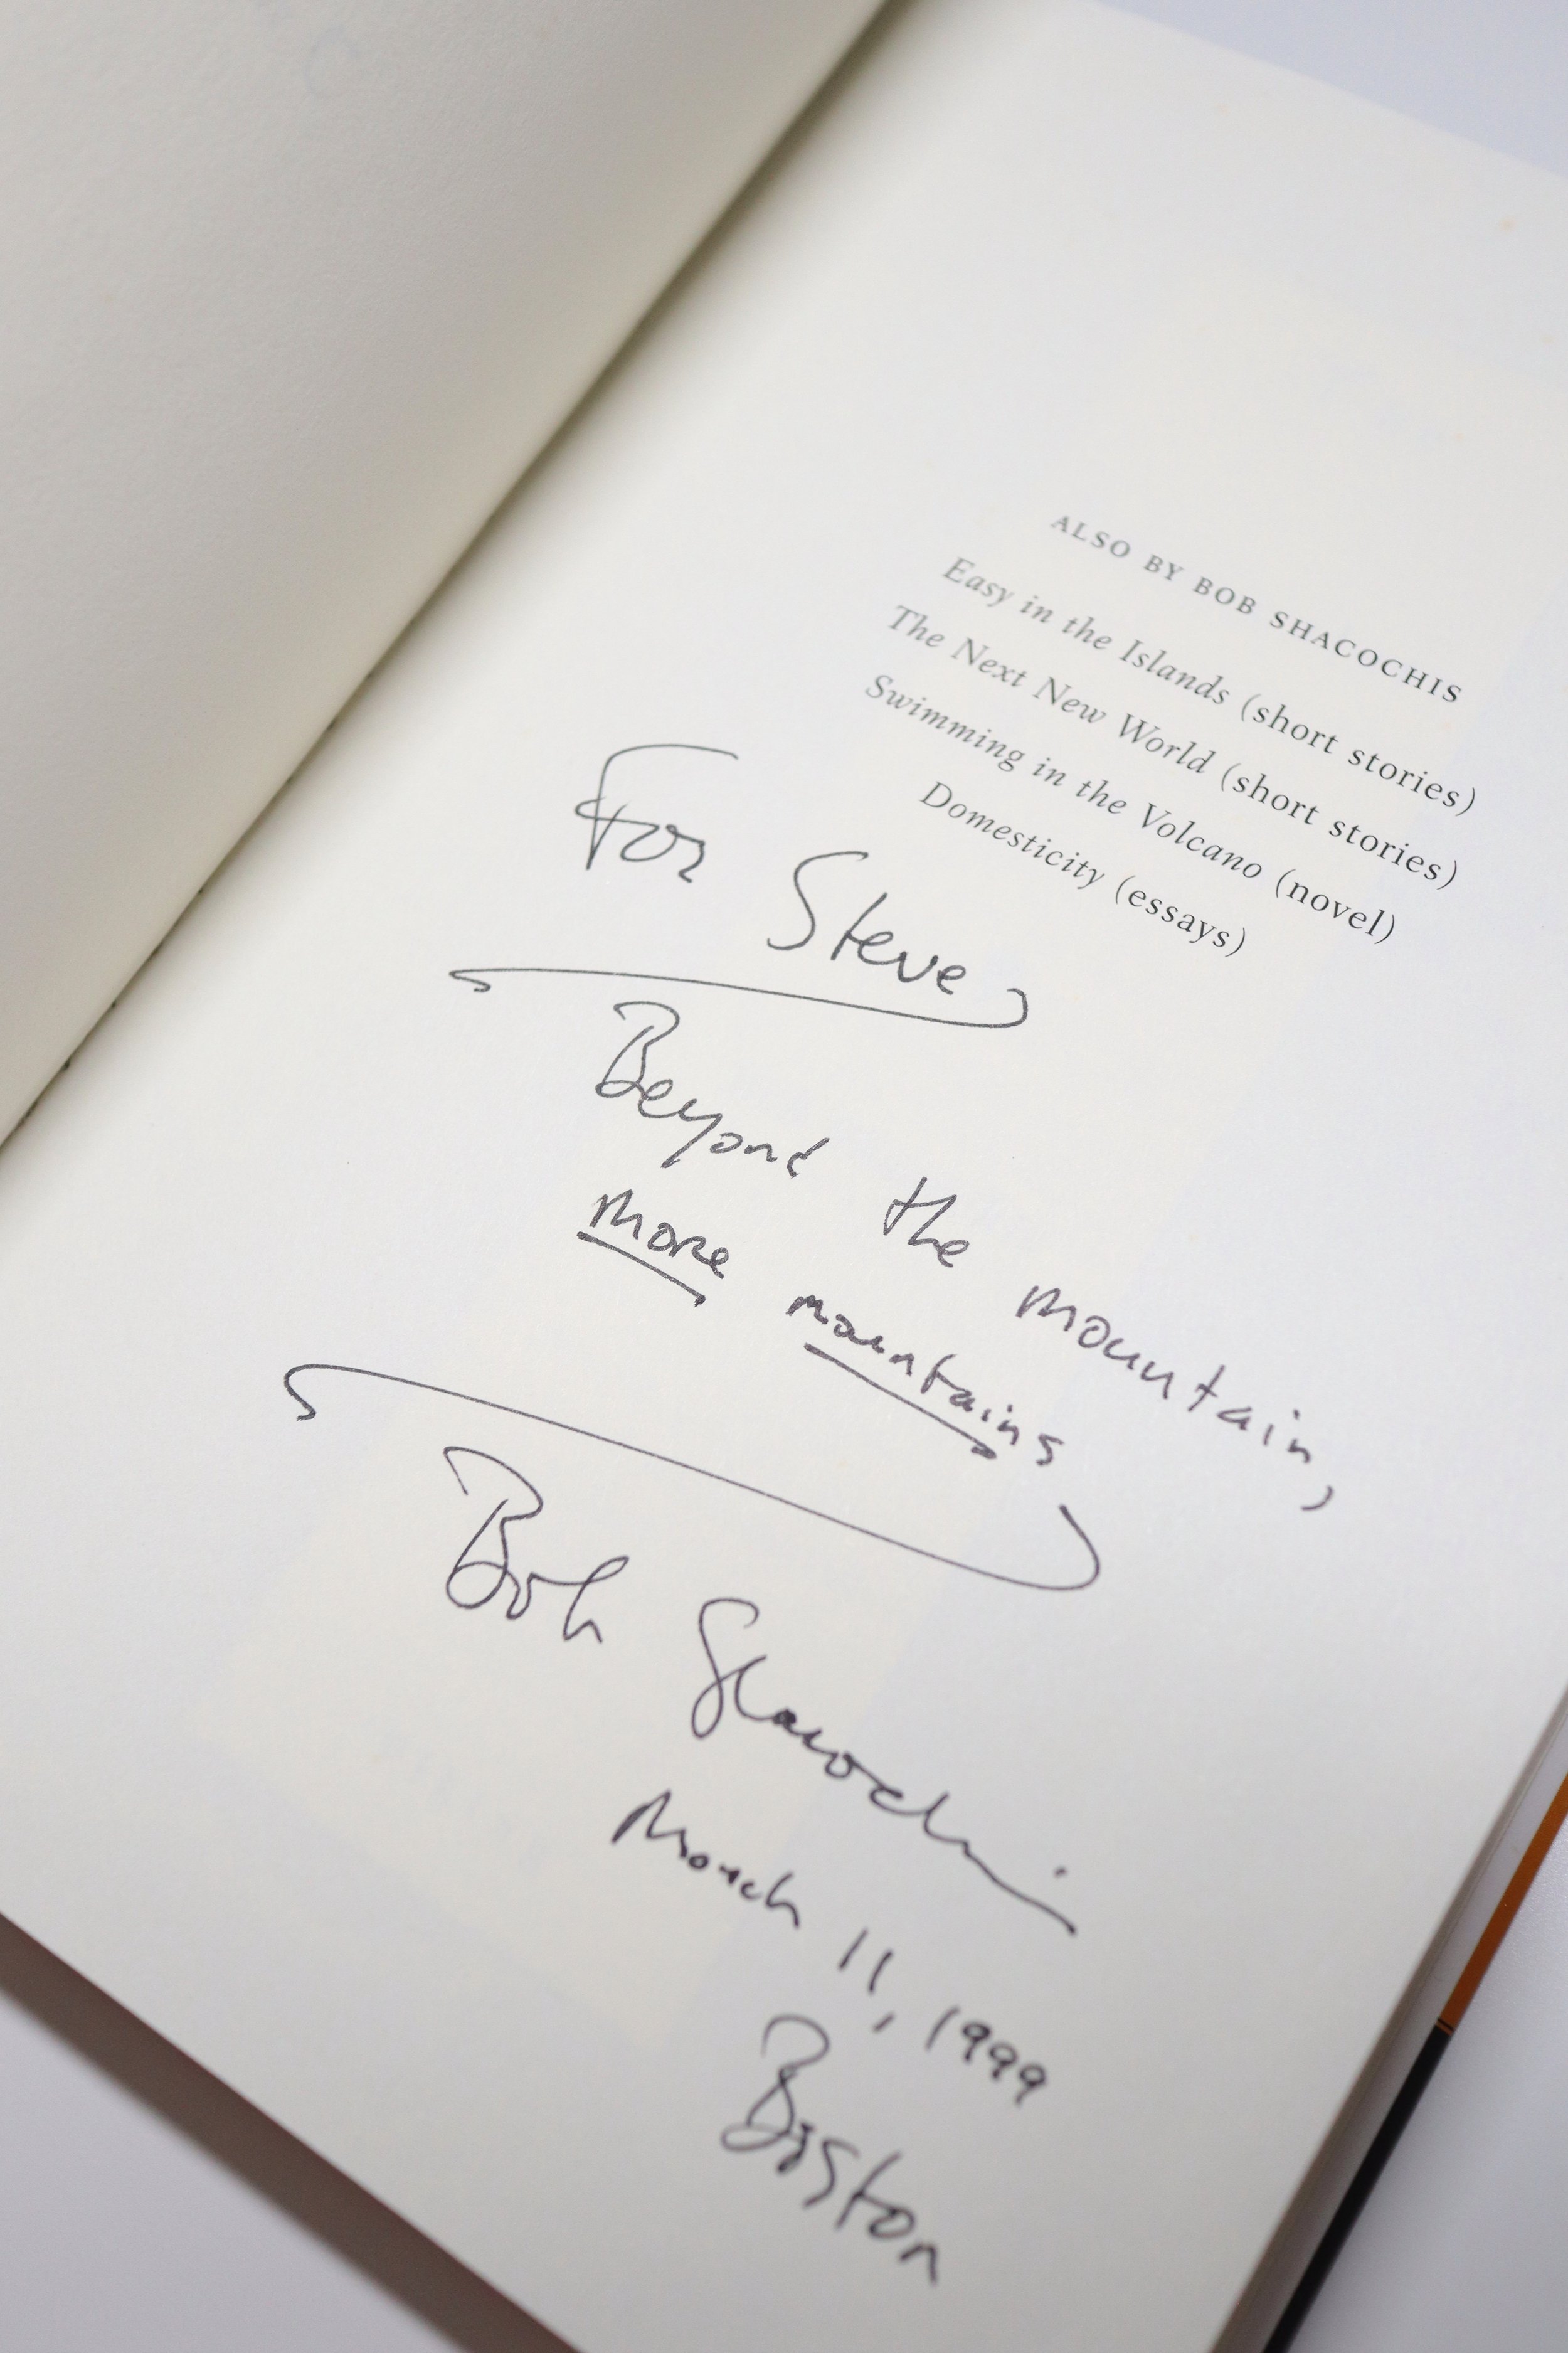 ALSO BY BOB SHACOCHIS
Easy in the Islands (short stories)
The Next New World (short stories)
Swimming in the Volcano (novel)
Domesticity (essays)
For Steve
Beyond the mountain,
more mountains
Bob Shacochis
March 11, 1999
Boston